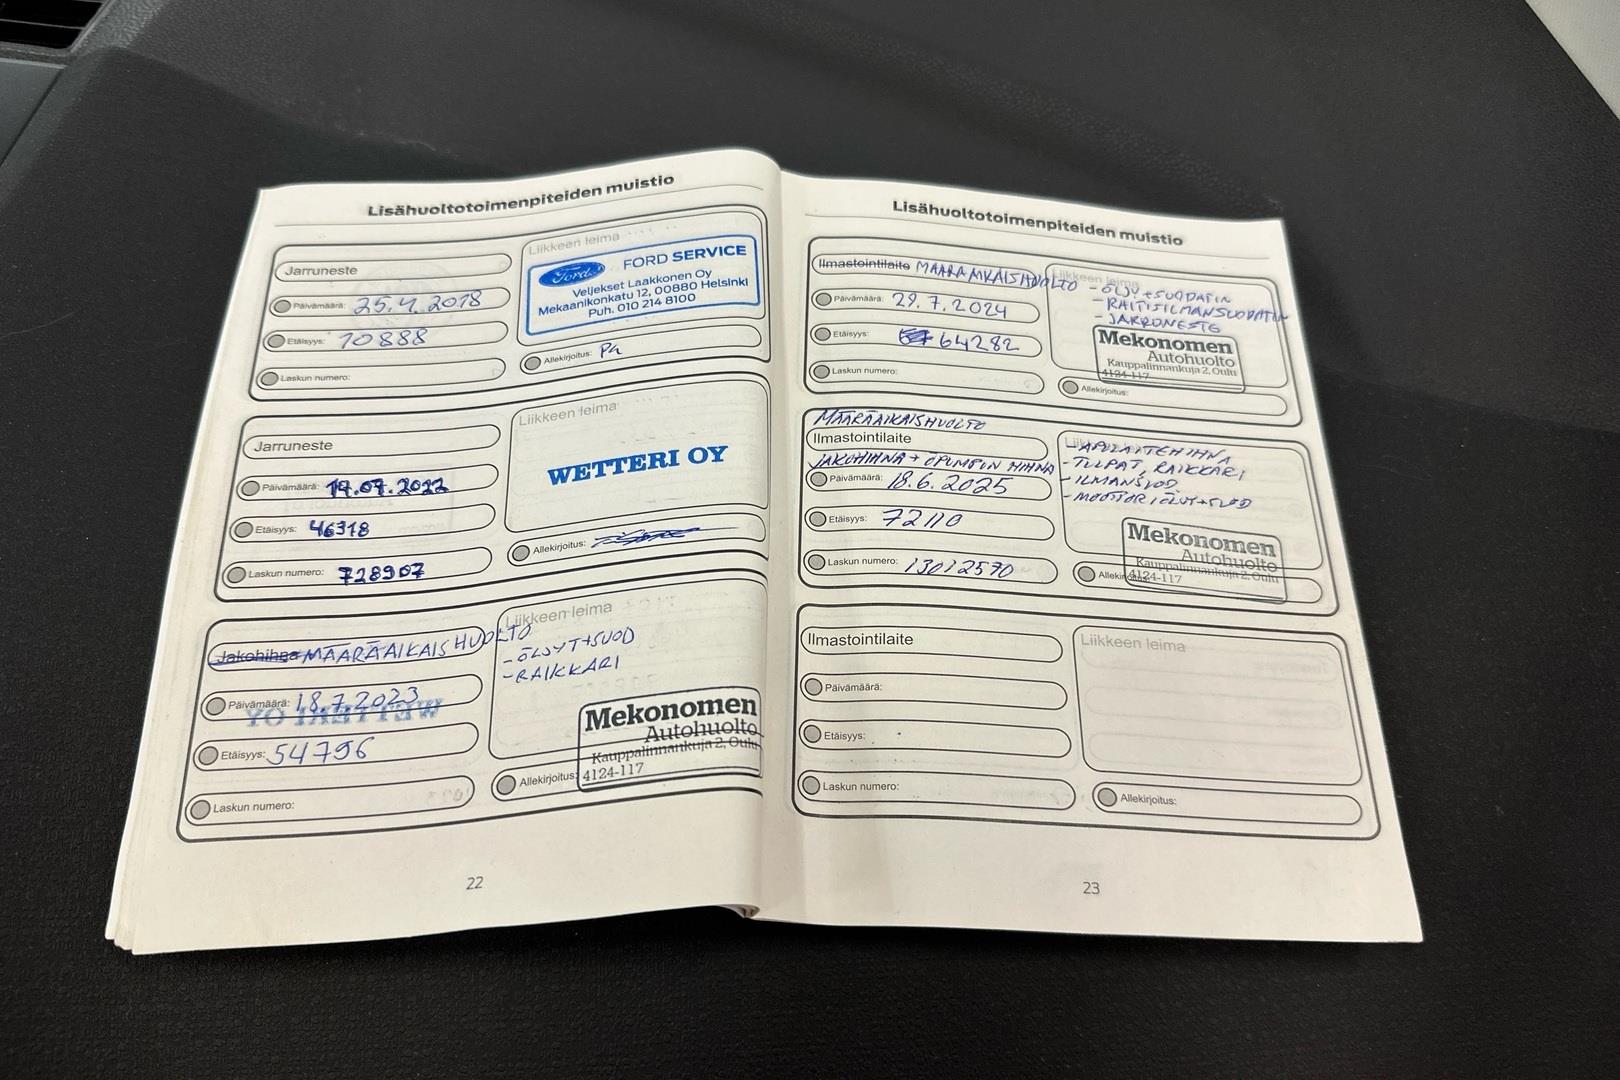 Lisähuoltotoimenpiteiden muistio
Jarruneste
Päivämäärä: 25.4.2018
Etäisyys: 10888
Laskun numero:
Liikkeen leima
Ford FORD SERVICE
Veljekset Laakkonen Oy
Mekaanikonkatu 12, 00880 Helsinki
Puh. 010 214 8100
Allekirjoitus:
Jarruneste
Päivämäärä: 14.07.2022
Etäisyys: 46318
Laskun numero: 728907
Liikkeen leima
WETTERI OY
Allekirjoitus:
Jakohihna MÄÄRÄAIKAISHUOLTO
Päivämäärä: 18.7.2023
Etäisyys: 54796
Laskun numero:
Liikkeen leima
-ÖLJYT+SUOD
-RAIKKARI
Mekonomen
Autohuolto
Kauppalinnankuja 2, Oulu
4124-117
Allekirjoitus:
22
Lisähuoltotoimenpiteiden muistio
Ilmastointilaite MÄÄRÄAIKAISHUOLTO
Päivämäärä: 29.7.2024
Etäisyys: 64282
Laskun numero:
Liikkeen leima
-ÖLJY+SUODATIN
-RAITISILMANSUODATIN
-JARRUNESTE
Mekonomen
Autohuolto
Kauppalinnankuja 2, Oulu
4124-117
Allekirjoitus:
MÄÄRÄAIKAISHUOLTO
Ilmastointilaite
JAKOHIHNA + ÖPUMPUN HIHNA
Päivämäärä: 18.6.2025
Etäisyys: 72110
Laskun numero: 13012570
-APULAITEHIHNA
-TULPAT, RAIKKARI
-ILMANSUOD
-MOOTTORIÖLJY+SUOD
Mekonomen
Autohuolto
Kauppalinnankuja 2, Oulu
4124-117
Ilmastointilaite
Päivämäärä:
Etäisyys:
Laskun numero:
Liikkeen leima
Allekirjoitus:
23